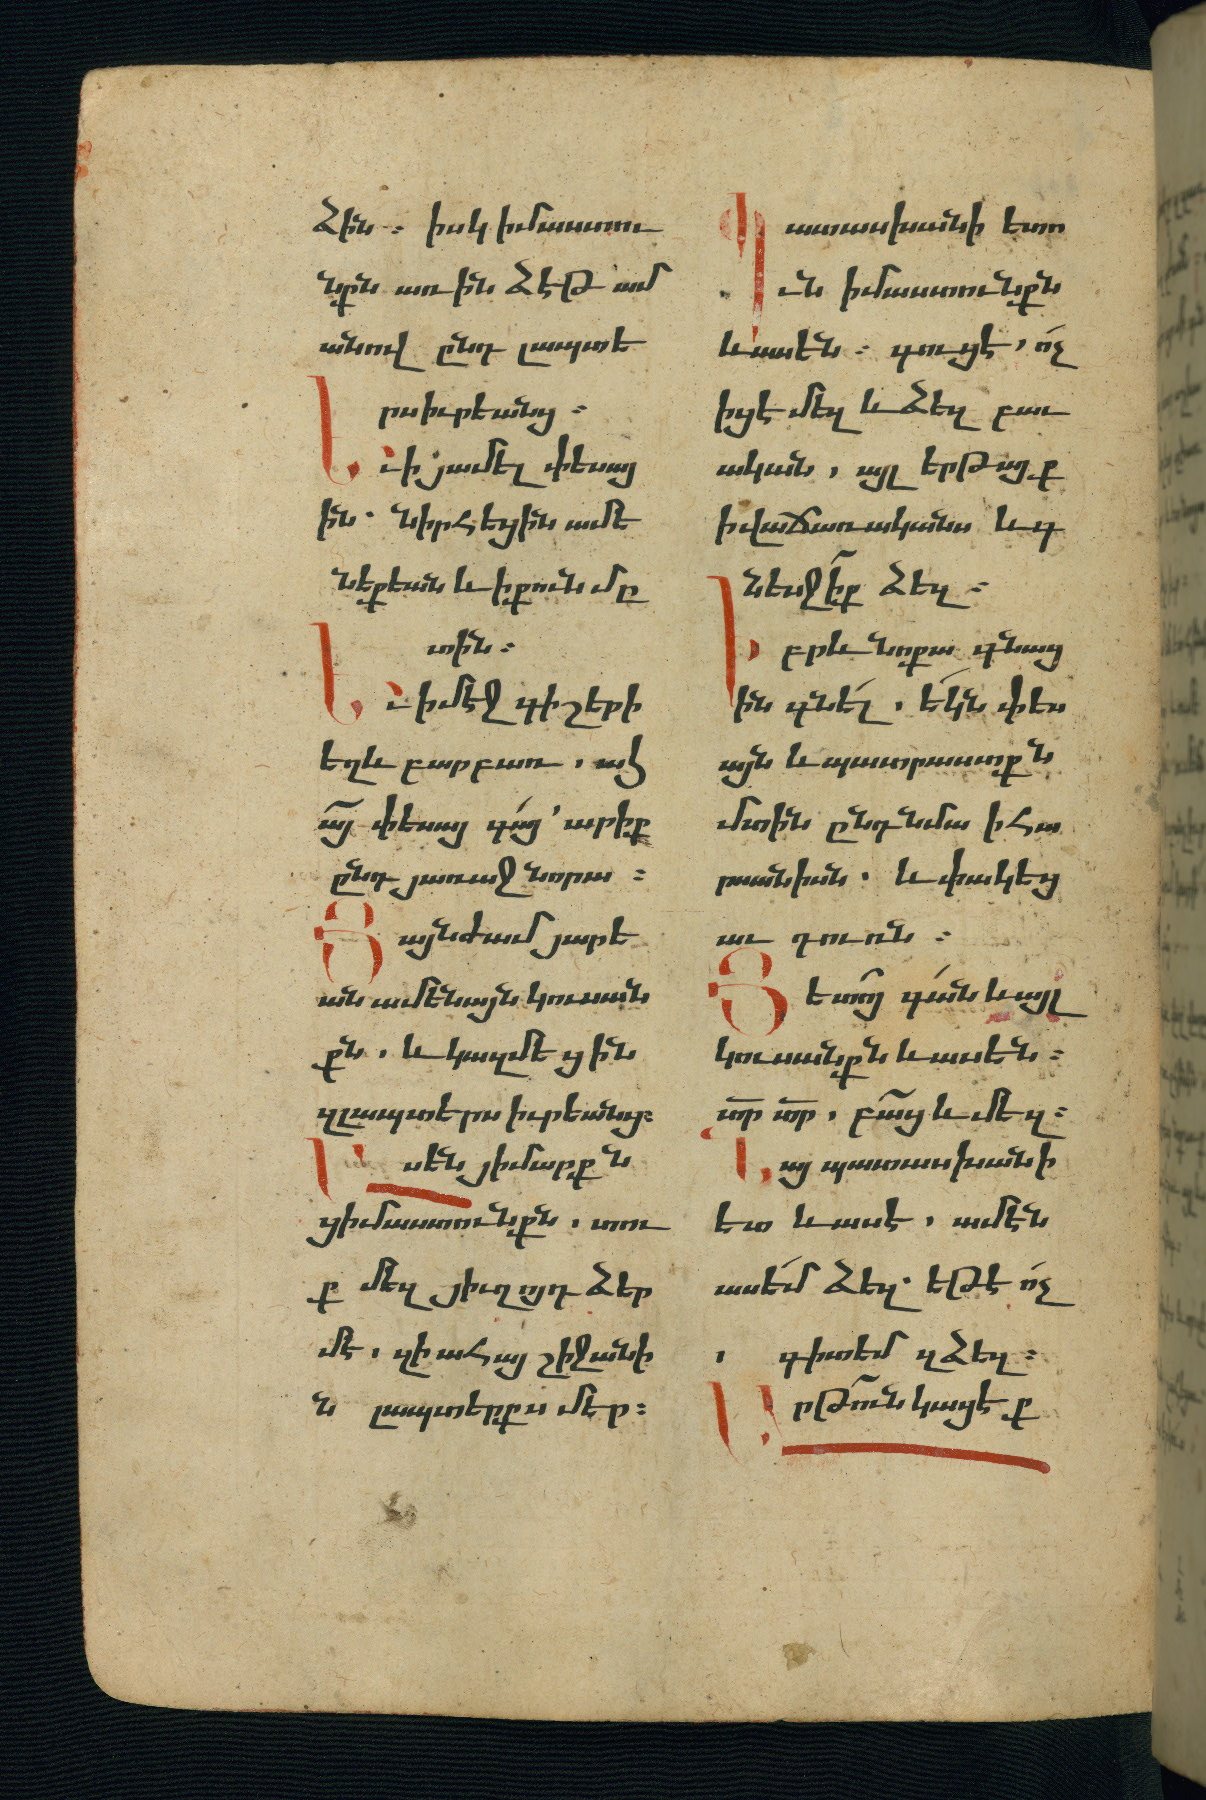 ձին։ իսկ իմաստու
նքն առին ձէթ ամ
անով ընդ լապտե
րսիւրեանց։
Եւ ի յամել փեսայ
ին· նիրհեցին ամե
նեքեան և ի քուն մը
տին։
Եւ ի մէջ գիշերի
եղև բարբառ, ահ
ա՜յ փեսայ գա՛յ՝ արիք
ընդ յառաջ նորա։
Յայնժամ յարե
ան ամենայն կուսան
քն, և կազմեցին
զլապտերս իւրեանց։
Ասեն յիմարքն
ցիմաստունքն, տու
ք մեզ յիւղոյդ ձեր
մէ, զի ահայ շիջանի
ն լապտերքս մեր։
Պատասխանի ետո
ւն իմաստունքն
և ասեն։ գուցէ, ո՛չ
իցէ մեզ և ձեզ բաւ
ական, այլ երթայք
ի վաճառականս և գ
նեսջի՜ք ձեզ։
Իբրև նոքա գնաց
ին գնե՛լ, ե՛կն փես
այն և պատրաստքն
մտին ընդ նմա ի հա
րսանիսն· և փակեց
աւ դուռն։
Յետո՜յ գա՛ն և այլ
կուսանքն և ասեն։
տ՜ր տ՜ր, բա՜ց և մեզ։
Նա պատասխանի
ետ և ասէ, ամէն
ասե՛մ ձեզ· եթե ո՛չ
, գիտեմ զձեզ։
Արթո՜ւն կացէք